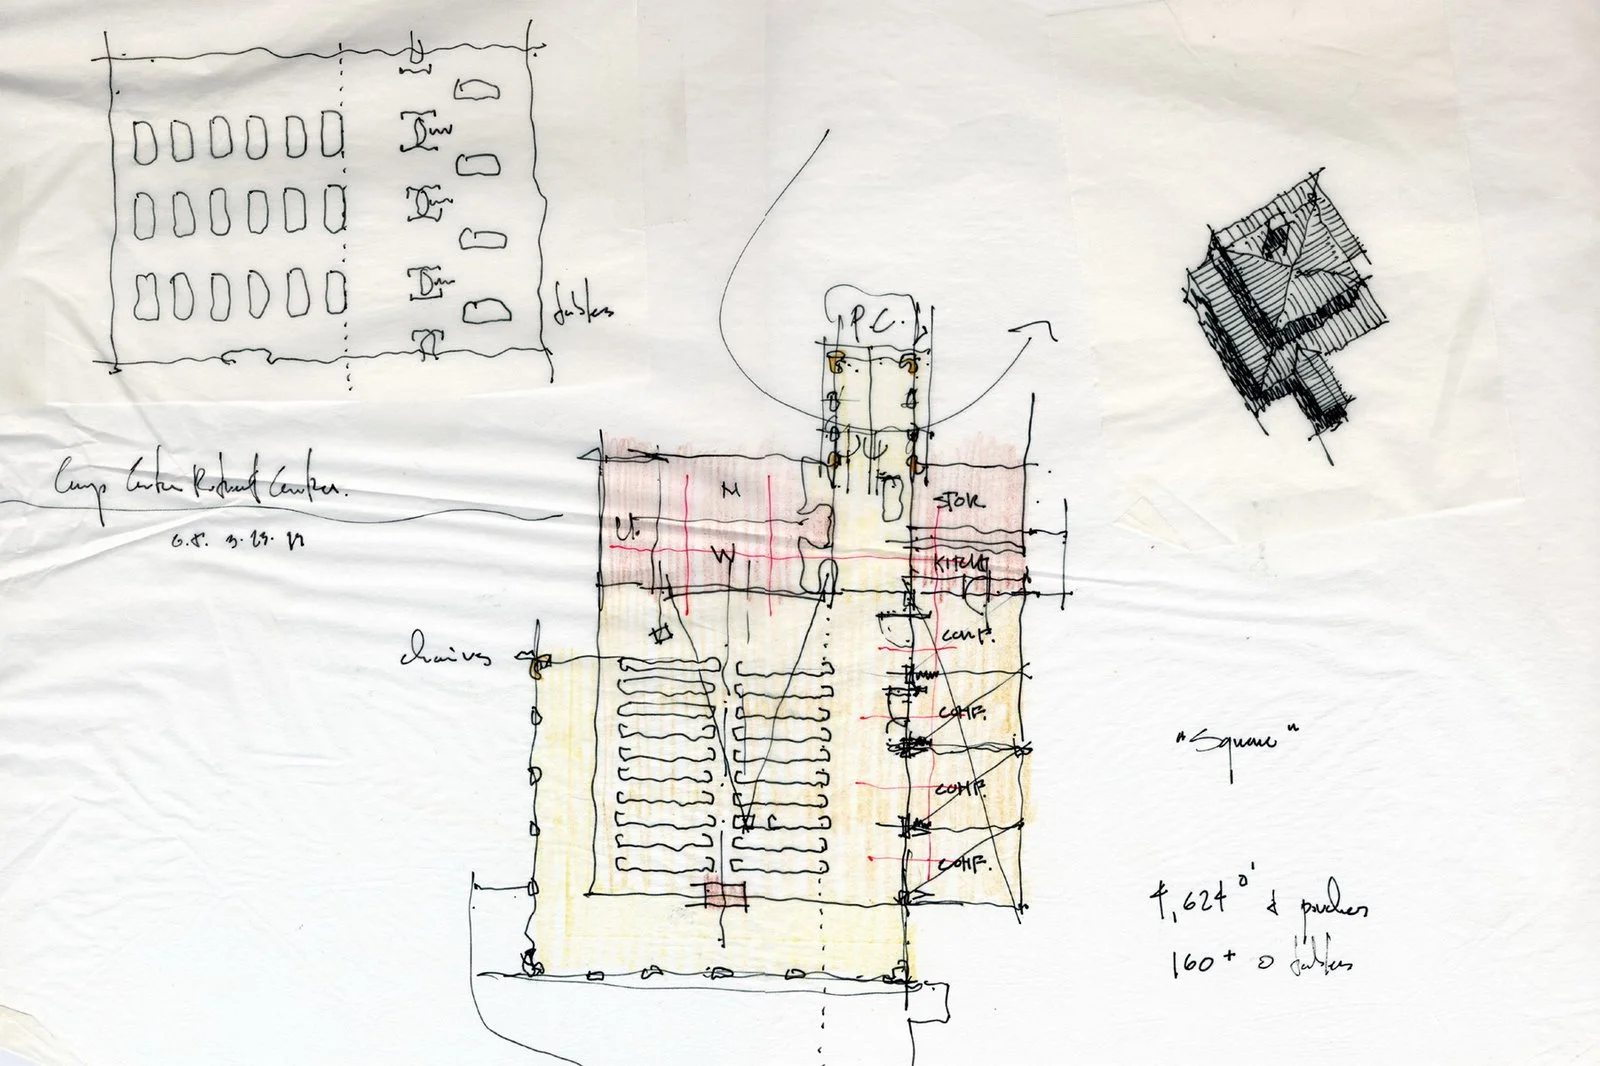 tables
P.C.
Camp Center Retreat Center.
M
STOR
U.
W
KITCH
chairs
CONF.
CONF.
CONF.
CONF.
"Square"
4,624 & porches
160+ @ tables